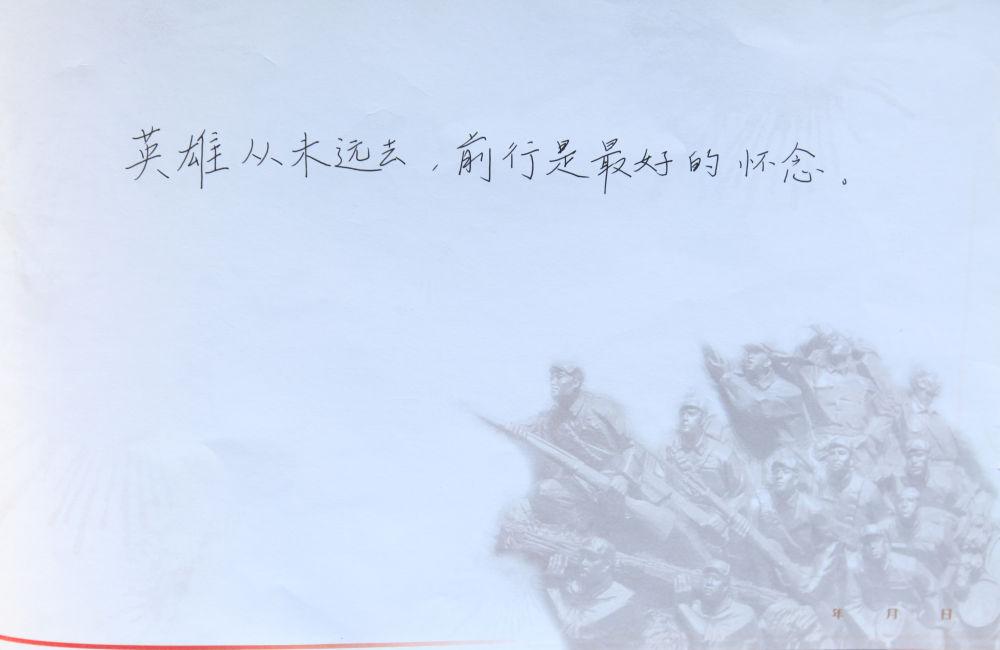 英雄从未远去，前行是最好的怀念。
年 月 日